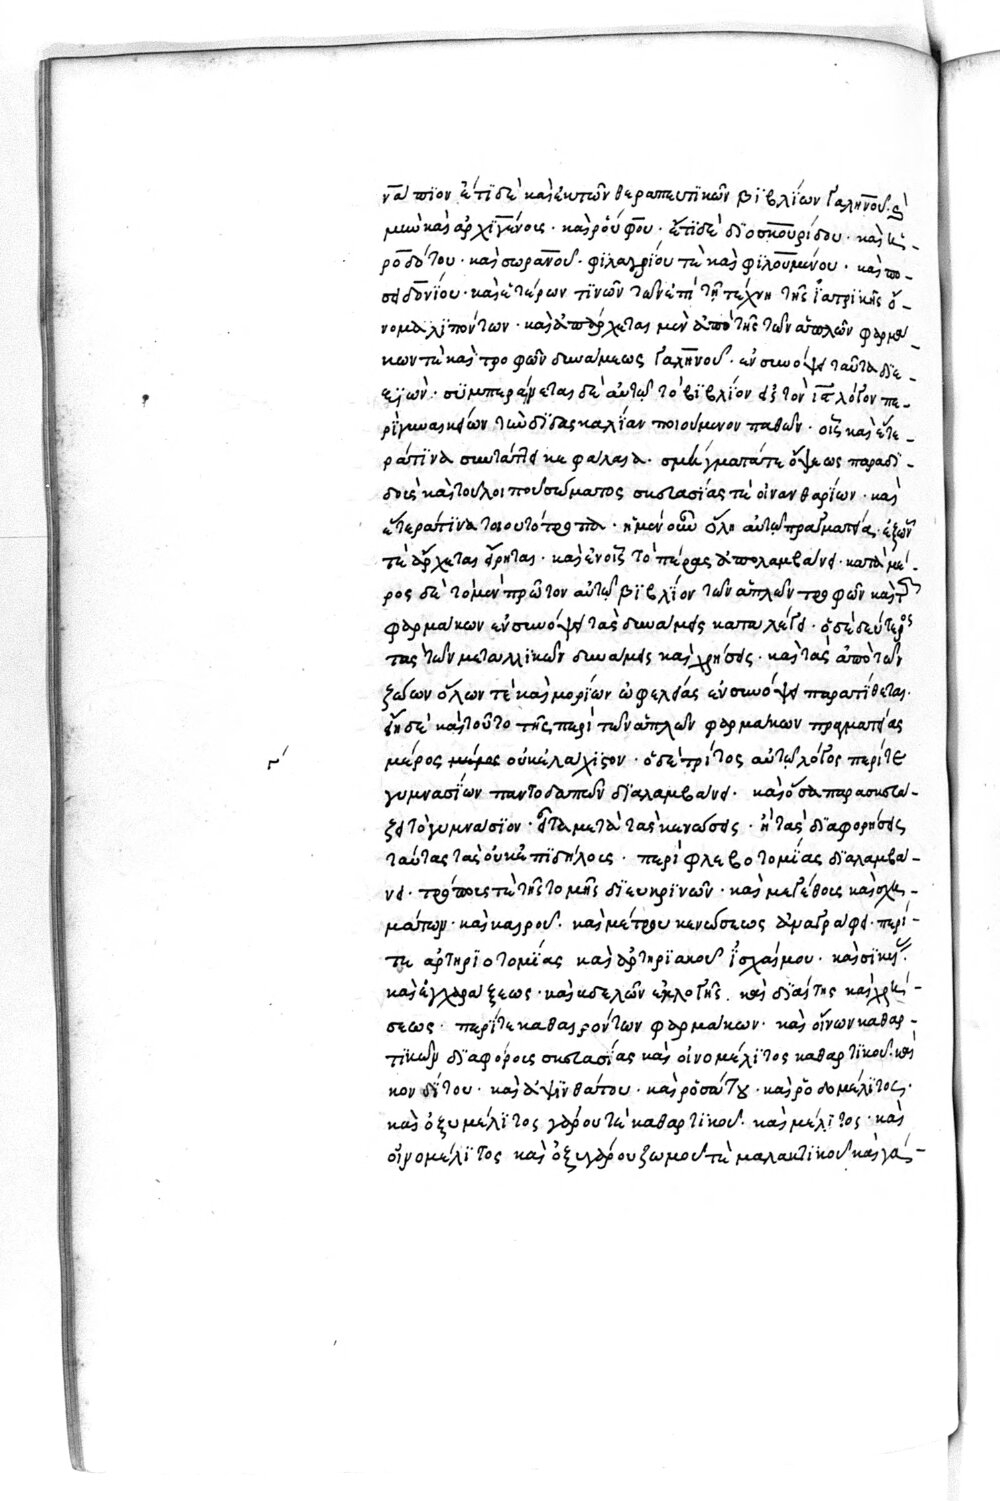 νάπιον ἔτι δὲ καὶ ἐκ τῶν θεραπευτικῶν βιβλίων Γαληνοῦ. ἀλ
μὴν καὶ ἀρχιγένοις · καὶ ῥούφου · ἔτι δὲ διοσκουρίδου · καὶ ἡ-
ροδότου · καὶ σωρανοῦ · φιλαγρίου τὲ καὶ φιλουμένου · καὶ πο-
σιδονίου · καὶ ἑτέρων τινῶν τῶν ἐπὶ τῇ τέχνῃ τῆς ἰατρικῆς ὄ-
νομα λιπόντων · καὶ ἀπάρχεται μὲν ἀπὸ τῆς τῶν ἁπλῶν φαρμά-
κων τὲ καὶ τροφῶν δυνάμεως Γαληνοῦ · ἐν συνόψει ταῦτα διε-
ξιών · συμπεραίνεται δὲ αὐτῷ τὸ βιβλίον εἰς τὸν ια λόγον πε-
ρὶ γυναικείων τὴν διδασκαλίαν ποιούμενον παθῶν · οἷς καὶ ἕτε-
ρά τινα συνάπτει κεφάλαια · σμήγματά τε ὄψεως παραδι-
δοὺς καὶ τοῦ λοιποῦ σώματος σκευασίας τὲ οἰνανθαρίων · καὶ
ἕτερά τινα τοιουτότροπα · ἡ μὲν οὖν ὅλη αὐτῷ πραγματεία · ἐξ ὧν
τὲ ἄρχεται εἴρηται · καὶ ἐν οἷς τὸ πέρας ἀπολαμβάνει · κατὰ μέ-
ρος δὲ τὸ μὲν πρῶτον αὐτῷ βιβλίον τῶν ἁπλῶν τροφῶν καὶ
φαρμάκων ἐν συνόψει τὰς δυνάμεις καταλέγει · ὁ δὲ δεύτερος
τὰς τῶν μεταλλικῶν δυνάμεις καὶ χρήσεις · καὶ τὰς ἀπὸ τῶν
ζώων ὅλων τὲ καὶ μορίων ὠφελείας ἐν συνόψει παρατίθεται ·
ἔτι δὲ καὶ τοῦτο τῆς περὶ τῶν ἁπλῶν φαρμάκων πραγματείας
μέρος οὐκ ἐλάχιστον · ὁ δὲ τρίτος αὐτῷ λόγος περί τε
γυμνασίων παντοδαπῶν διαλαμβάνει · καὶ ὅσα παρασκευά-
ζει τὸ γυμνάσιον · εἶτα μετὰ τὰς κενώσεις · ἢ τὰς διαφορήσεις
ταύτας τὰς οὐκ ἐπιδήλοις · περὶ φλεβοτομίας διαλαμβά-
νει · τρόποις τὲ τῆς τομῆς διευκρινῶν · καὶ μεγέθοις καὶ σχη-
μάτων · καὶ καιροῦ · καὶ μέτρου κενώσεως ἀναγράφει · περί-
τε ἀρτηριοτομίας καὶ ἀρτηριακοῦ ἰσχαίμου · καὶ σικυῶν
καὶ ἐγχαράξεως · καὶ βδελλῶν ἐκλογῆς · καὶ διαίτης καὶ χρή-
σεως · περί τε καθαιρόντων φαρμάκων · καὶ οἴνων καθαρ-
τικῶν διαφόροις σκευασίας καὶ οἰνομέλιτος καθαρτικοῦ · καὶ
κονδίτου · καὶ ἀψινθάτου · καὶ ῥοσάτου · καὶ ῥοδομέλιτος ·
καὶ ὀξυμέλιτος γάρου τὲ καθαρτικοῦ · καὶ μέλιτος · καὶ
οἰνομέλιτος καὶ ὀξυγάρου ζωμοῦ τὲ μαλακτικοῦ καὶ γα-